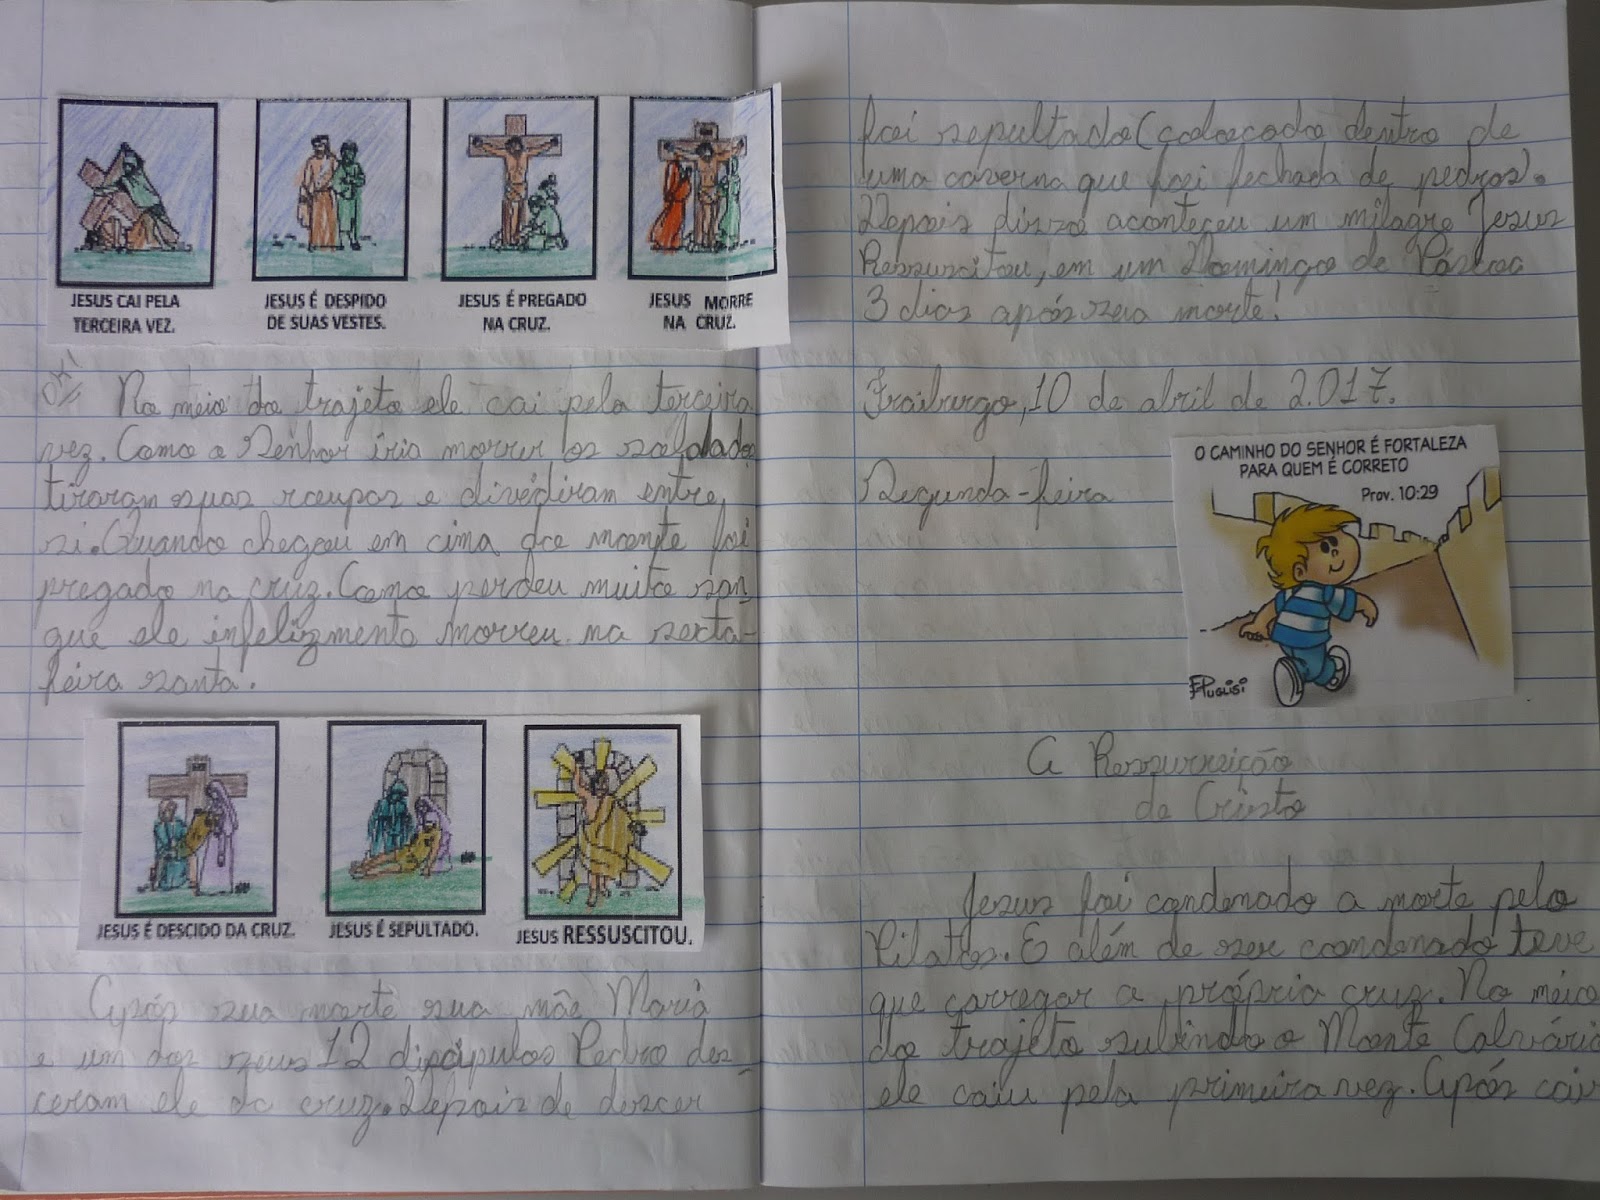 JESUS CAI PELA
TERCEIRA VEZ.
JESUS É DESPIDO
DE SUAS VESTES.
JESUS É PREGADO
NA CRUZ.
JESUS MORRE
NA CRUZ.
OK!
No meio do trajeto ele cai pela terceira
vez. Como o Senhor iria morrer os soldados
tiraram suas roupas e dividiram entre
si. Quando chegou em cima do monte foi
pregado na cruz. Como perdeu muito san
gue ele infelizmente morreu na sexta-
feira santa.
JESUS É DESCIDO DA CRUZ.
JESUS É SEPULTADO.
JESUS RESSUSCITOU.
Após sua morte sua mãe Maria
e um dos seus 12 discípulos Pedro des_
ceram ele da cruz. Depois de descer
foi sepultado (colocado dentro de
uma caverna que foi fechada de pedras).
Depois disso aconteceu um milagre Jesus
Ressuscitou, em um Domingo de Páscoa
3 dias após seu morte!
Fraiburgo, 10 de abril de 2.017.
Segunda-feira
O CAMINHO DO SENHOR É FORTALEZA
PARA QUEM É CORRETO
Prov. 10:29
EPUGLISI
A Ressurreição
de Cristo
Jesus foi condenado a morte pelo
Pilatos. E além de ser condenado teve
que carregar a própria cruz. No meio
do trajeto subindo o Monte Calvário
ele caiu pela primeira vez. Após cair